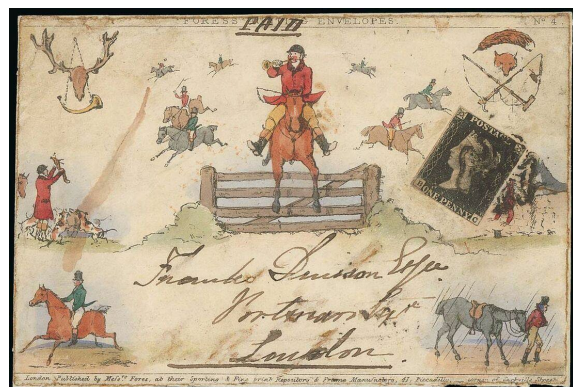 FORES'S ENVELOPES. Nº 4
PAID
POSTAGE
ONE PENNY
Denison Esqr
Portman Sqre
London.
London Published by Messrs Fores, at their Sporting & Fine print Repository & Frame Manufactory, 41, Piccadilly, corner of Sackville Street.